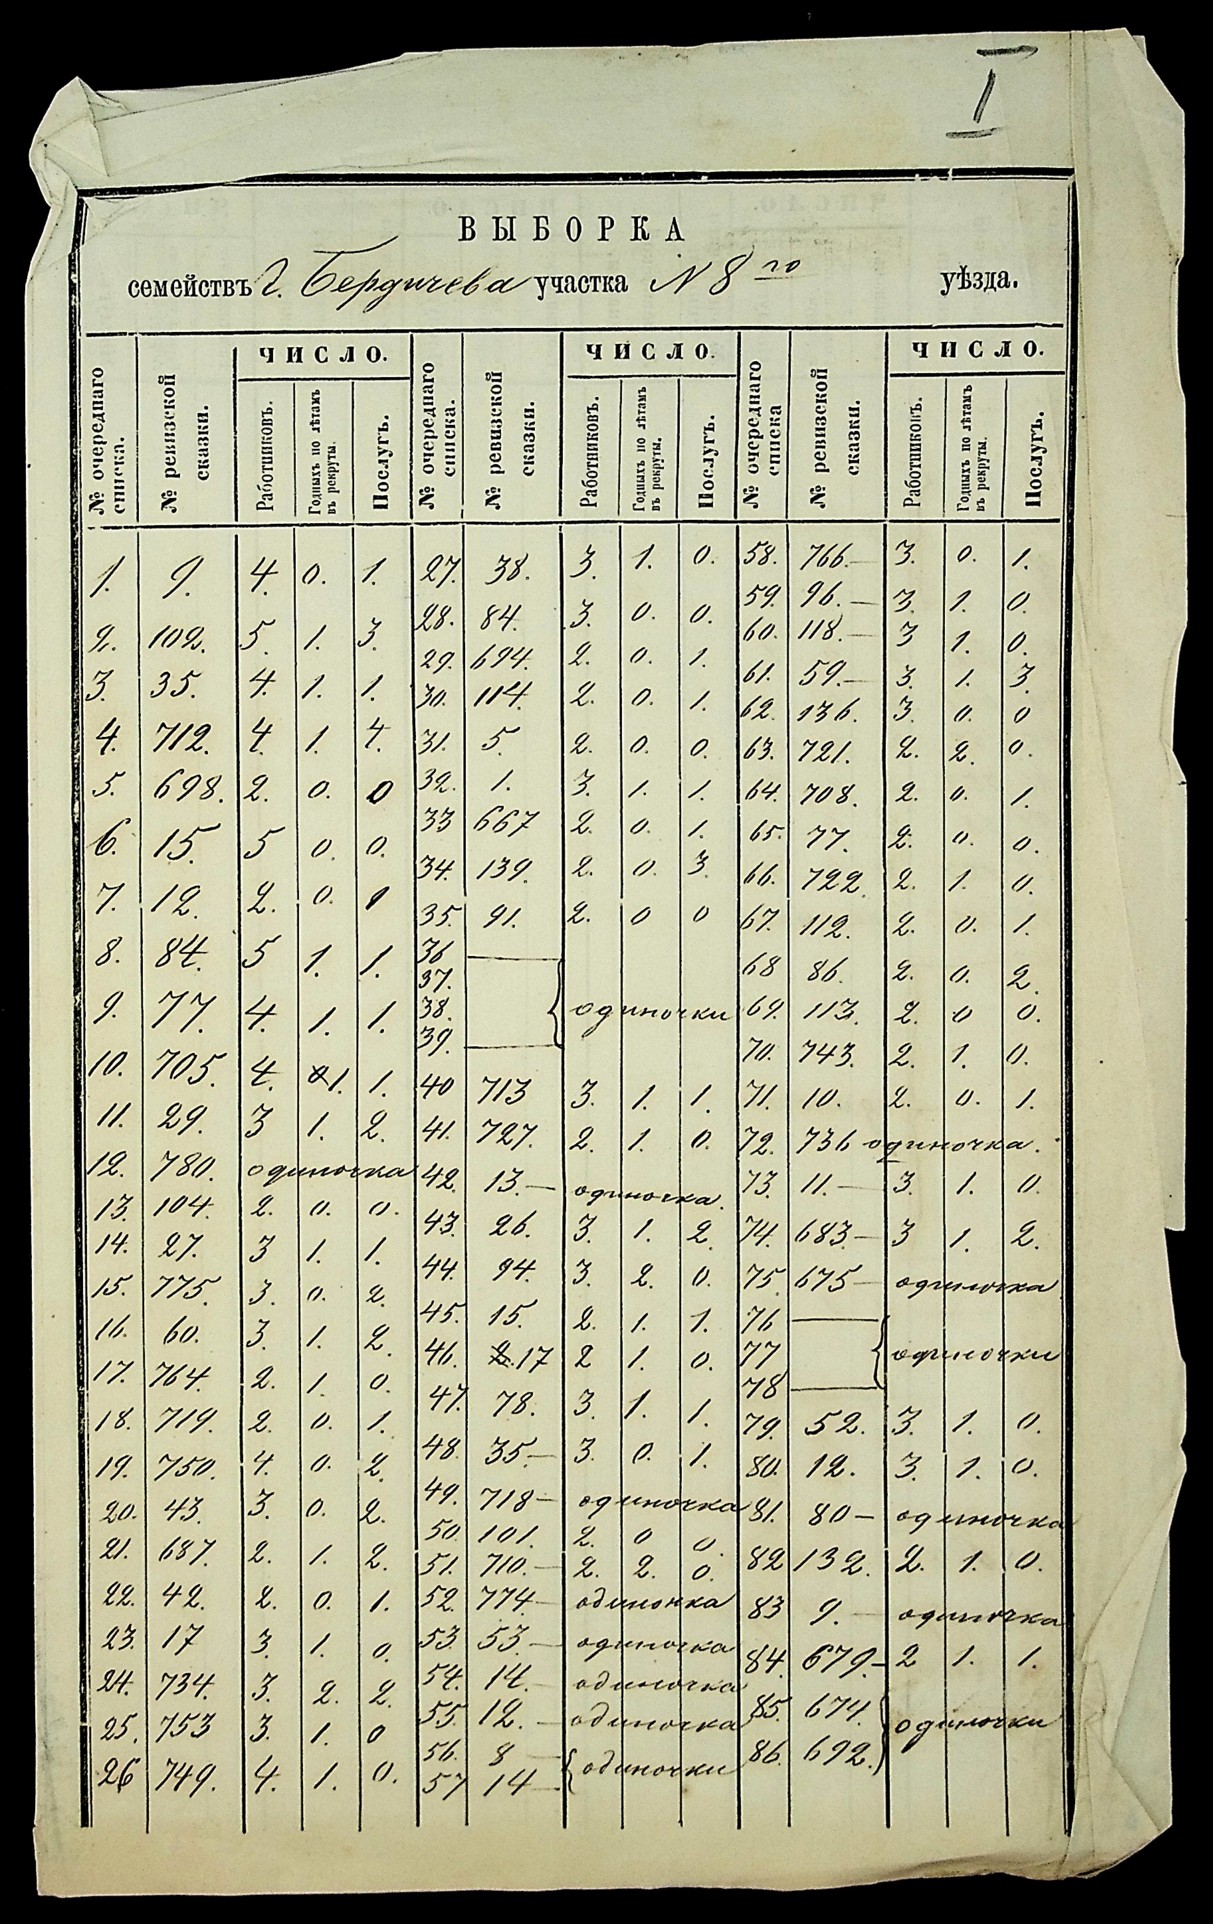 I
ВЫБОРКА
семействъ г. Бердичева участка N 8 го уѣзда.
№ очереднаго списка. № ревизской сказки. ЧИСЛО. Работниковъ. Годныхъ по лѣтамъ въ рекруты. Послугъ. № очереднаго списка. № ревизской сказки. ЧИСЛО. Работниковъ. Годныхъ по лѣтамъ въ рекруты. Послугъ. № очереднаго списка № ревизской сказки. ЧИСЛО. Работниковъ. Годныхъ по лѣтамъ въ рекруты. Послугъ.
1. 9. 4. 0. 1.
2. 102. 5. 1. 3.
3. 35. 4. 1. 1.
4. 712. 4. 1. 4.
5. 698. 2. 0. 0
6. 15. 5 0. 0.
7. 12. 2. 0. 1
8. 84. 5 1. 1.
9. 77. 4. 1. 1.
10. 705. 4. 1. 1.
11. 29. 3 1. 2.
12. 780. одиночка
13. 104. 2. 0. 0.
14. 27. 3 1. 1.
15. 775. 3. 0. 2.
16. 60. 3. 1. 2.
17. 764. 2. 1. 0.
18. 719. 2. 0. 1.
19. 750. 4. 0. 2.
20. 43. 3. 0. 2.
21. 687. 2. 1. 2.
22. 42. 2. 0. 1.
23. 17 3. 1. 0.
24. 734. 3. 2. 2.
25. 753 3. 1. 0
26 749. 4. 1. 0.
27. 38. 3. 1. 0.
28. 84. 3. 0. 0.
29. 694. 2. 0. 1.
30. 114. 2. 0. 1.
31. 5. 2. 0. 0.
32. 1. 3. 1. 1.
33 667 2. 0. 1.
34. 139. 2. 0. 3.
35. 91. 2. 0 0
36
37.
38. одиночки
39.
40 713 3. 1. 1.
41. 727. 2. 1. 0.
42. 13. — одиночка.
43. 26. 3. 1. 2.
44. 94. 3. 2. 0.
45. 15. 2. 1. 1.
46. 17 2 1. 0.
47. 78. 3. 1. 1.
48. 35. — 3. 0. 1.
49. 718 — одиночка
50. 101. 2. 0 0.
51. 710. — 2. 2. 0.
52. 774 — одиночка
53. 53. — одиночка
54. 14. — одиночка
55. 12. — одиночка
56. 8 —
57 14 — одиночки
58. 766. — 3. 0. 1.
59. 96. — 3. 1. 0.
60. 118. — 3 1. 0.
61. 59. — 3. 1. 3.
62. 136. 3. 0. 0
63. 721. 2. 2. 0.
64. 708. 2. 0. 1.
65. 77. 2. 0. 0.
66. 722. 2. 1. 0.
67. 112. 2. 0. 1.
68 86. 2. 0. 2.
69. 113. 2. 0 0.
70. 743. 2. 1. 0.
71. 10. 2. 0. 1.
72. 736 одиночка.
73. 11. — 3. 1. 0.
74. 683. — 3 1. 2.
75. 675 — одиночка
76
77 одиночки
78
79. 52. 3. 1. 0.
80. 12. 3. 1. 0.
81. 80 — одиночка
82 132. 2. 1. 0.
83 9. — одиночка
84. 679. — 2 1. 1.
85. 674. одиночки
86. 692.